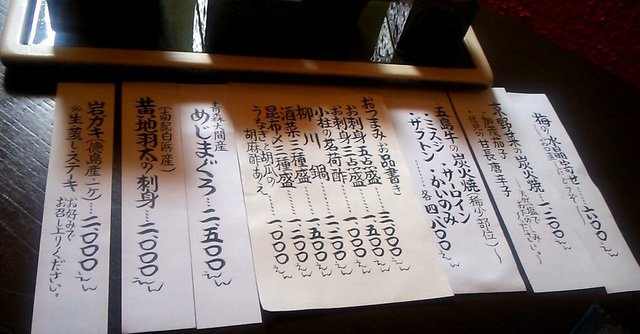 梅の水晶寄せ
京野菜の炭火焼……一二〇〇えん
賀茂茄子
甘長唐辛子
五島牛の炭火焼(稀少部位)〜
・ミスジ・サーロイン
・ザブトン・かいのみ
各四八〇〇えん
おつまみお品書き
お刺身五点盛……三〇〇〇えん
お刺身三点盛……一七〇〇えん
小柱の茗荷酢……一〇〇〇えん
柳川鍋……一五〇〇えん
酒菜三種盛……一二〇〇えん
昆布〆三種盛……一八〇〇えん
うざくと胡瓜の
胡麻酢あえ……一〇〇〇えん
(青森大間産)
めじまぐろ…二五〇〇えん
(南紀白浜産)
黄地羽太の刺身……二〇〇〇えん
岩ガキ(徳島産・一ケ)…二〇〇〇えん
※生、蒸し、ステーキ
お好みで
お召し上りください。